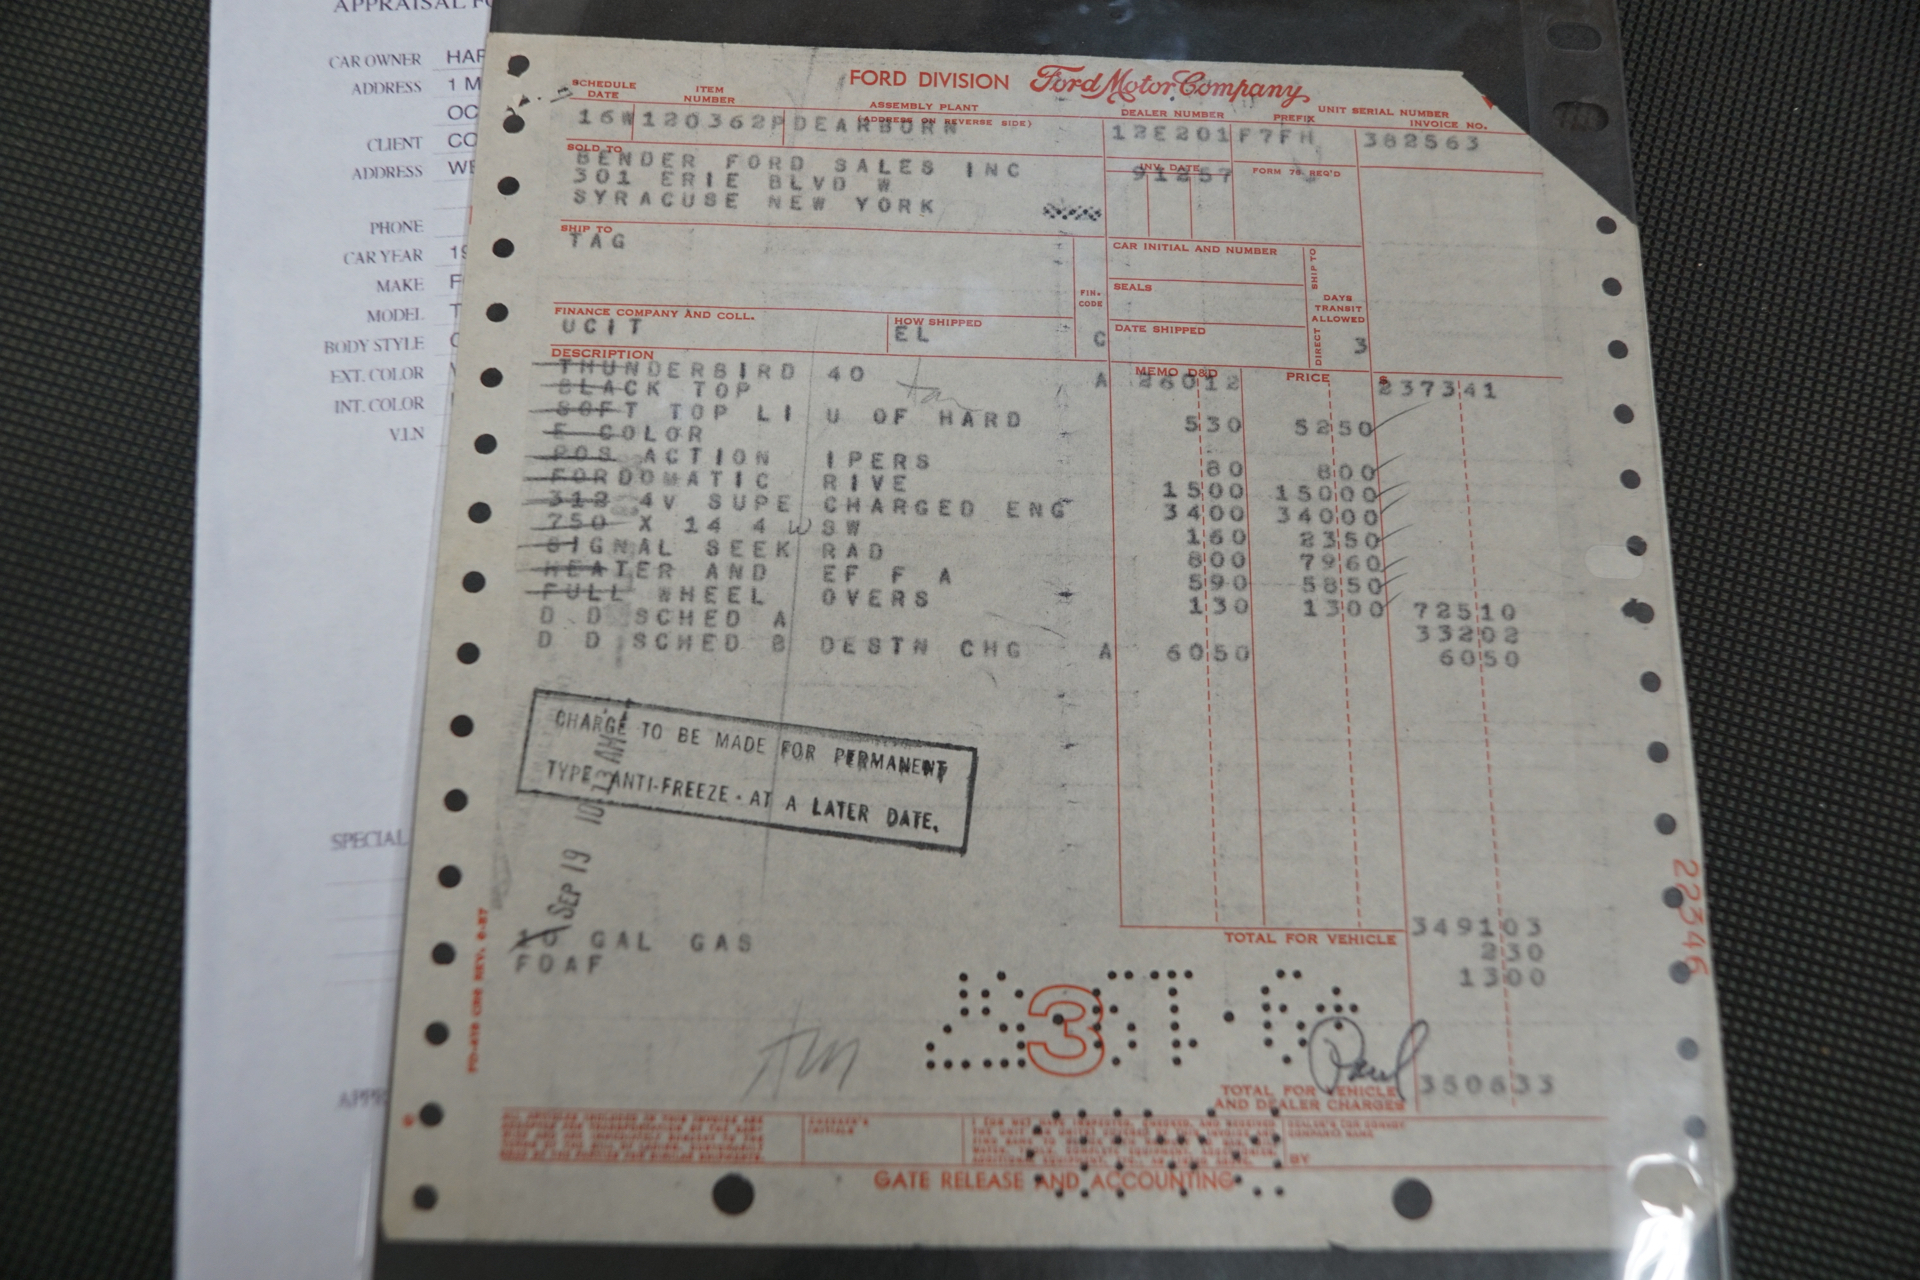 APPRAISAL
CAR OWNER
ADDRESS 1 M
OC
CLIENT CO
ADDRESS WE
PHONE
CAR YEAR 19
MAKE F
MODEL T
BODY STYLE
EXT. COLOR
INT. COLOR
V.I.N
SPECIAL
FORD DIVISION Ford Motor Company
SCHEDULE DATE ITEM NUMBER ASSEMBLY PLANT (ADDRESS ON REVERSE SIDE) DEALER NUMBER PREFIX UNIT SERIAL NUMBER INVOICE NO.
16W 120362P DEARBORN 12E201 F7FH 382563
SOLD TO INV. DATE FORM 78 REQ'D
BENDER FORD SALES INC 91257
301 ERIE BLVD W
SYRACUSE NEW YORK
SHIP TO
TAG
CAR INITIAL AND NUMBER
SEALS
FIN. CODE
SHIP TO
DIRECT
DAYS TRANSIT ALLOWED
3
FINANCE COMPANY AND COLL. HOW SHIPPED DATE SHIPPED
UCIT EL C
DESCRIPTION MEMO D&D PRICE $
THUNDERBIRD 40 A 26012 237341
BLACK TOP
SOFT TOP LI U OF HARD 530 5250
E COLOR
POS ACTION IPERS 80 800
FORDOMATIC RIVE 1500 15000
312 4V SUPE CHARGED ENG 3400 34000
750 X 14 4 W SW 160 2350
SIGNAL SEEK RAD 800 7960
HEATER AND EF F A 590 5850
FULL WHEEL OVERS 130 1300 72510
D D SCHED A 33202
D D SCHED B DESTN CHG A 6050 6050
CHARGE TO BE MADE FOR PERMANENT
TYPE ANTI-FREEZE - AT A LATER DATE.
SEP 19 10 13 AM
TOTAL FOR VEHICLE 349103
10 GAL GAS 230
FOAF 1300
22346
3
Paul
TOTAL FOR VEHICLE AND DEALER CHARGES 350633
BY
GATE RELEASE AND ACCOUNTING